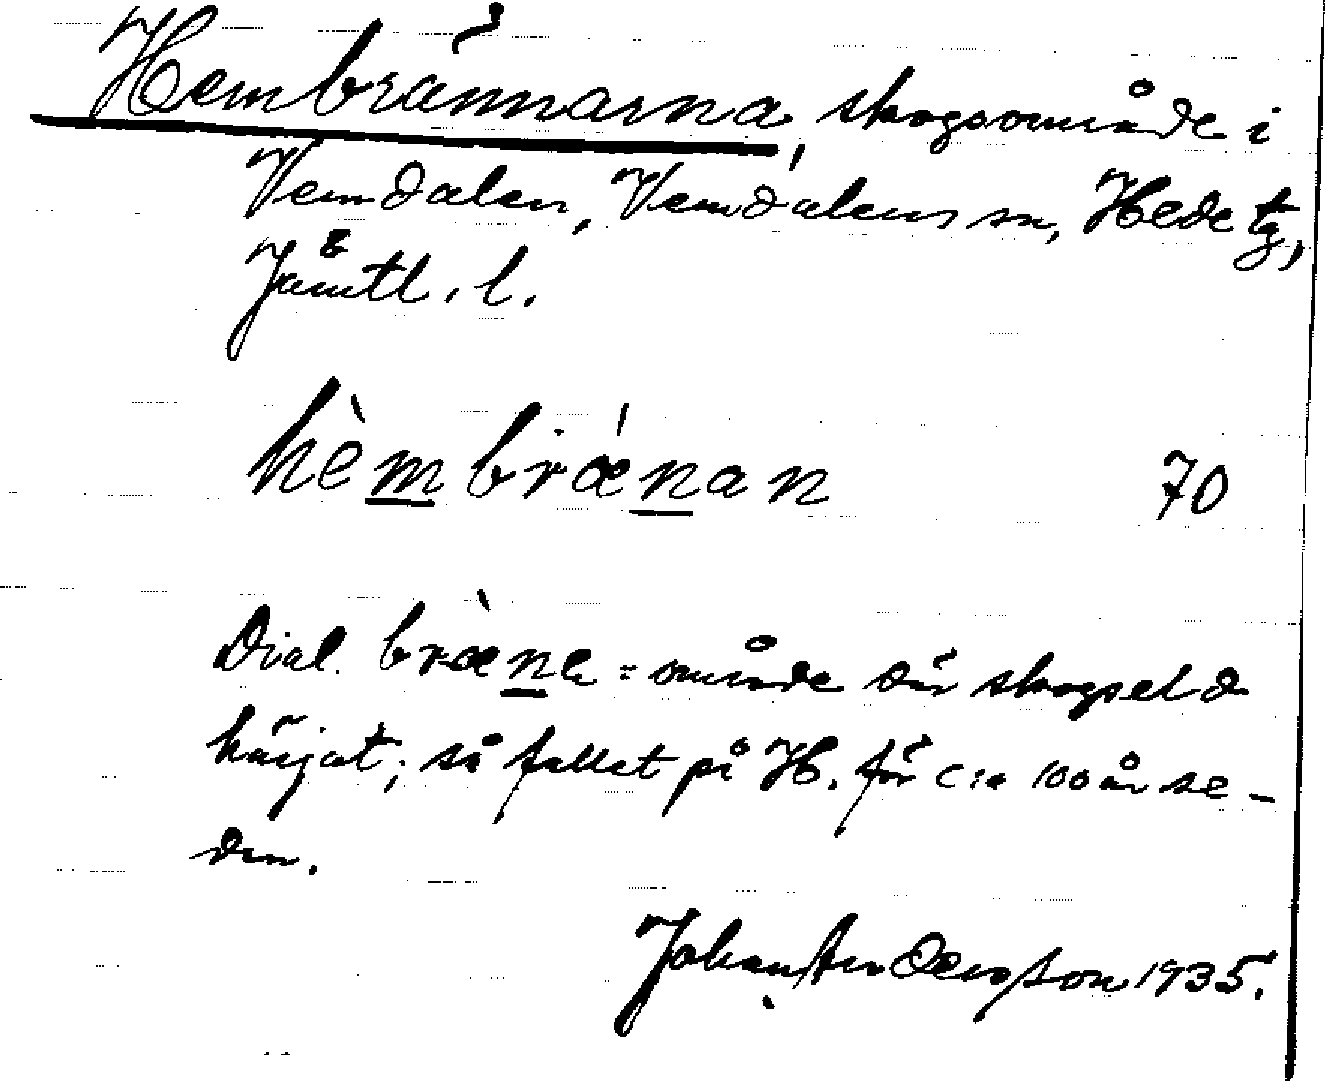 Hembrännarna, skogsområde i
Vemdalen, Vemdalens sn, Hede tg,
Jämtl. l.
hèmbrǽnan 70
Dial. bræ̀ne = område där skogseld
härjat; så fallet på H. för c:a 100 år se-
dan.
Johan Andersson 1935.